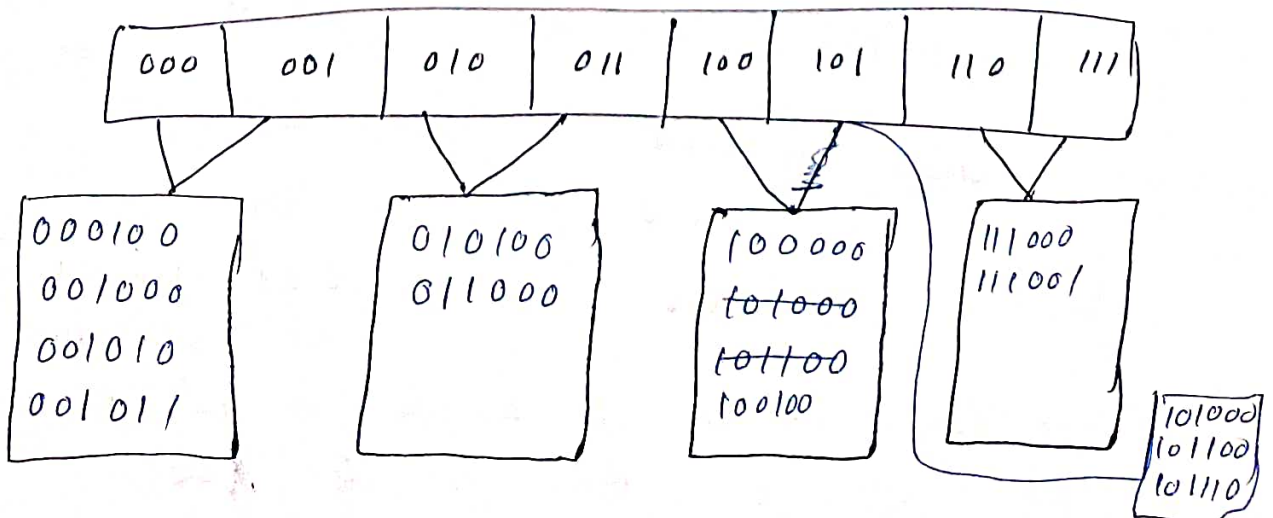 000 001 010 011 100 101 110 111
000100
001000
001010
001011
010100
011000
100000
101000
101100
100100
111000
111001
101000
101100
101110